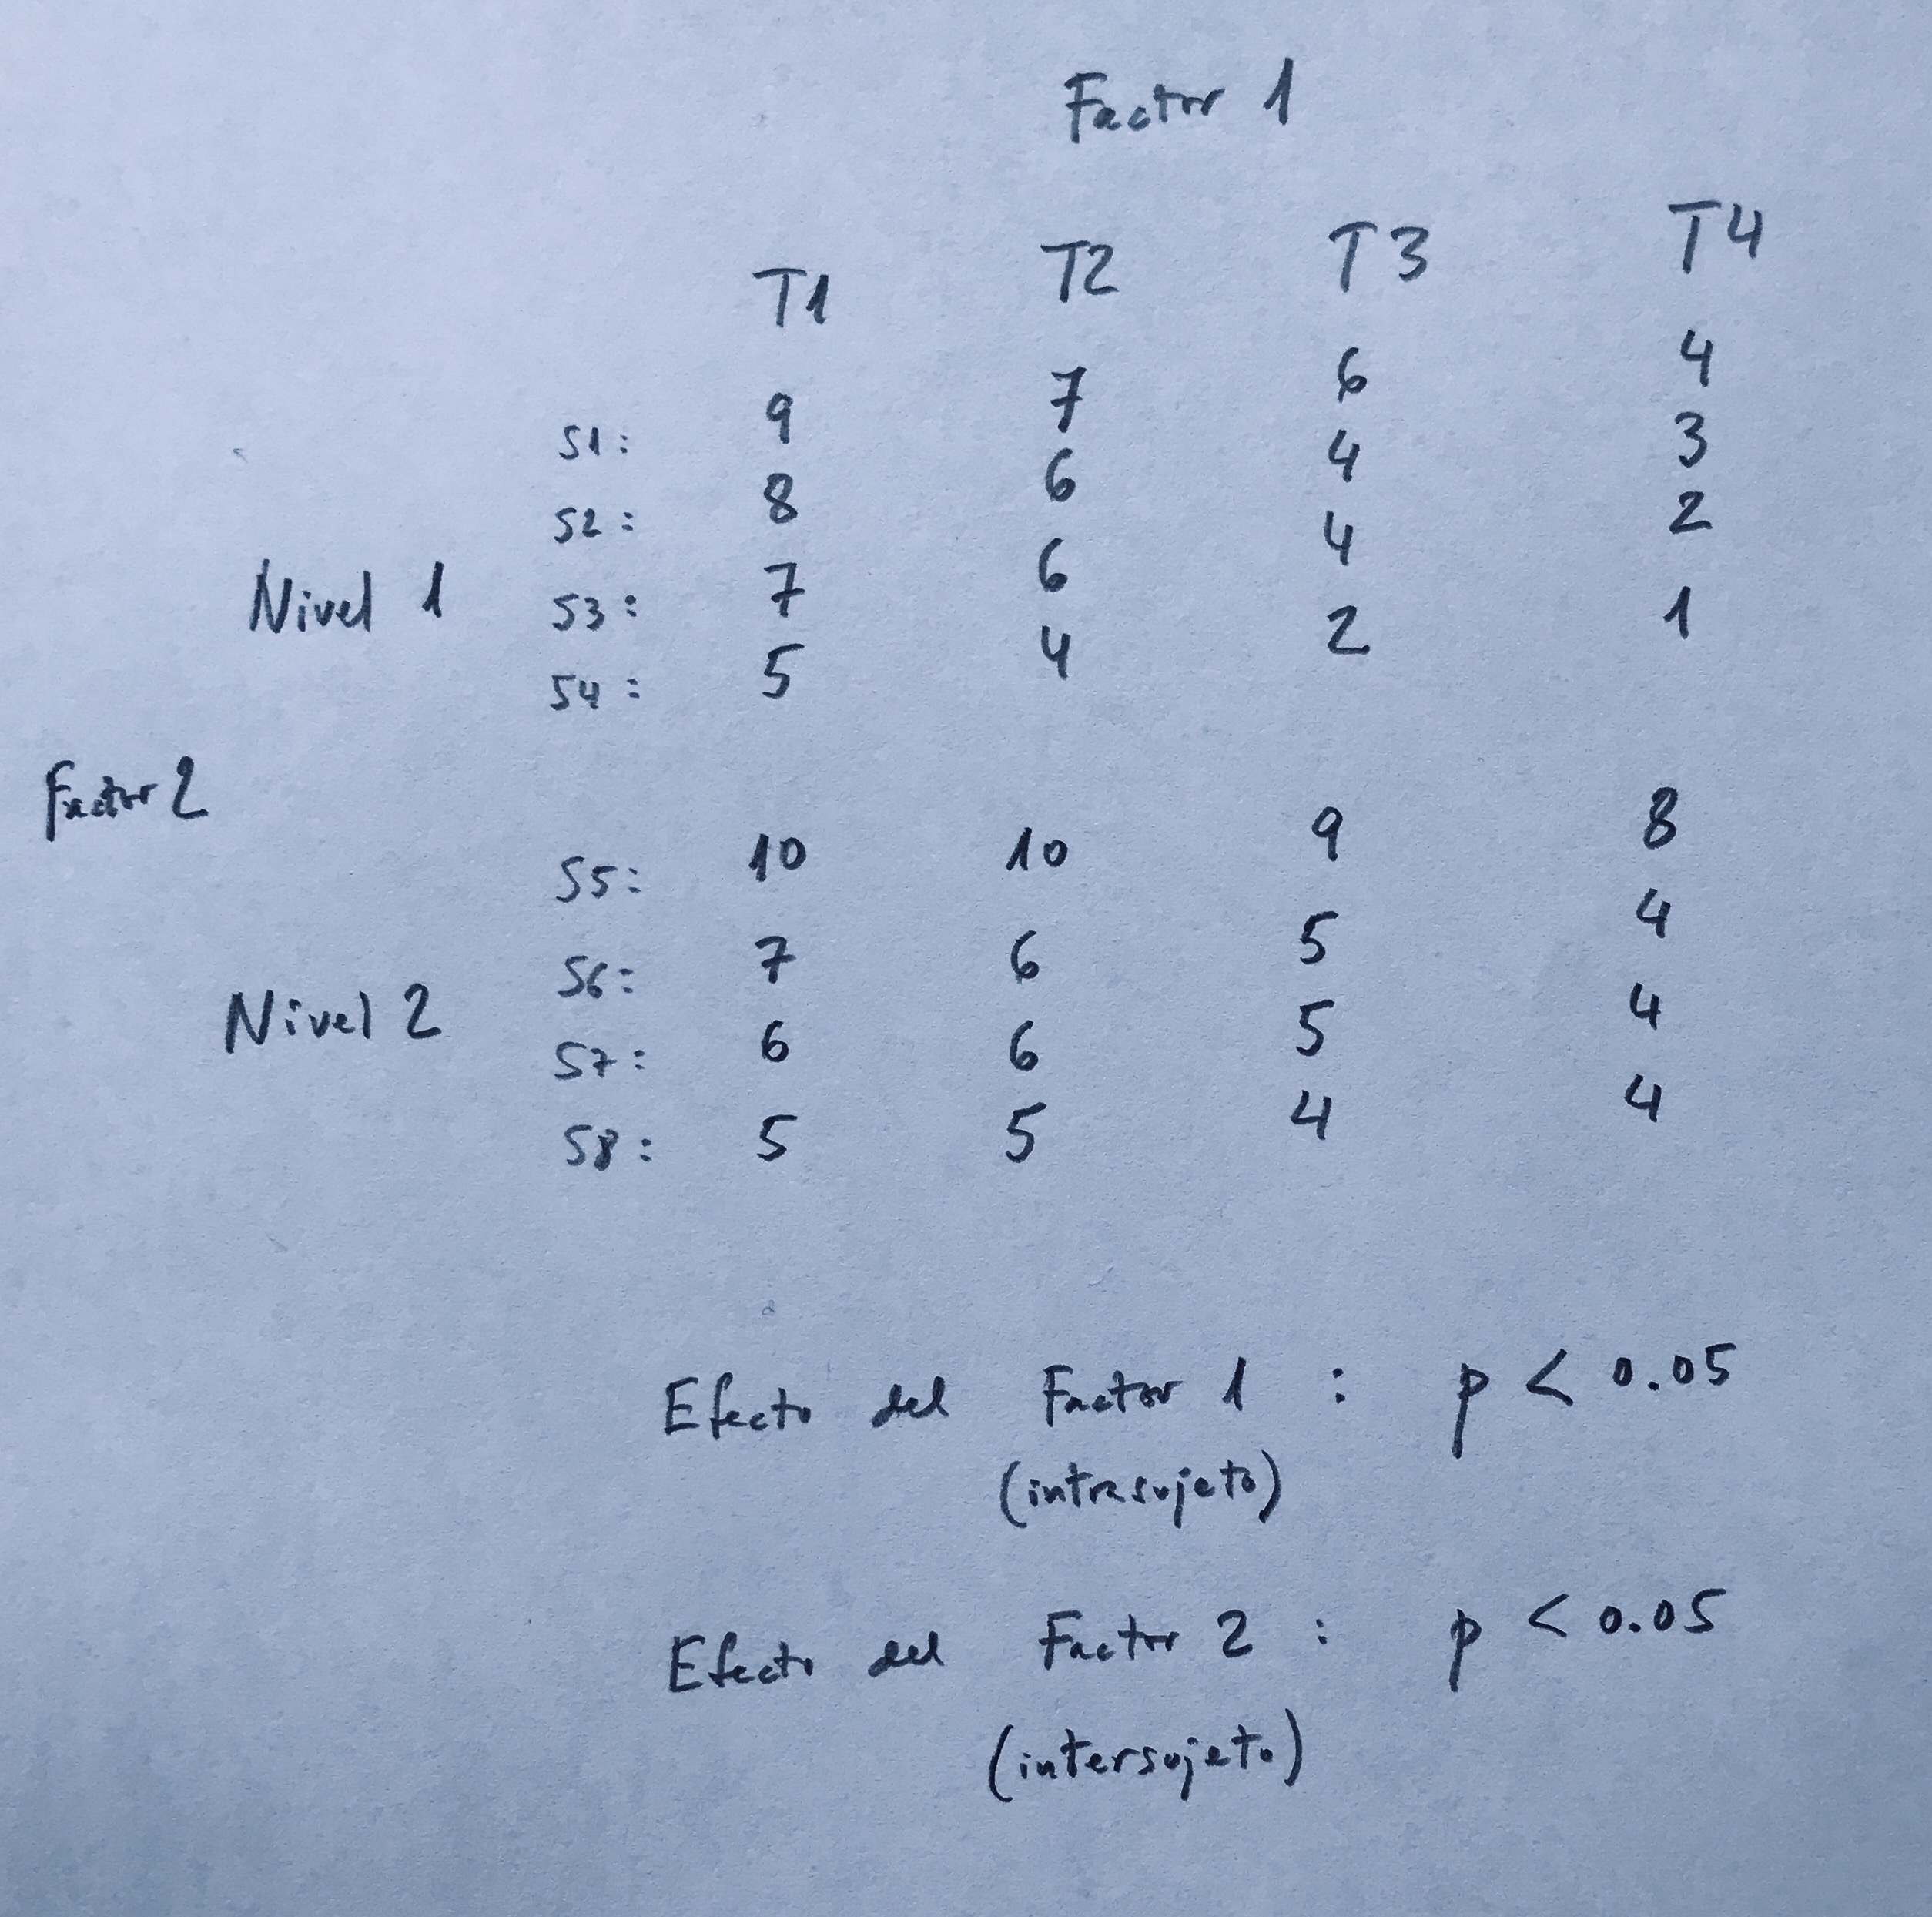 Factor 1
T1 T2 T3 T4
S1: 9 7 6 4
S2: 8 6 4 3
Nivel 1 S3: 7 6 4 2
S4: 5 4 2 1
Factor 2
S5: 10 10 9 8
S6: 7 6 5 4
Nivel 2 S7: 6 6 5 4
S8: 5 5 4 4
Efecto del Factor 1 : p < 0.05
(intrasujeto)
Efecto del Factor 2 : p < 0.05
(intersujeto)